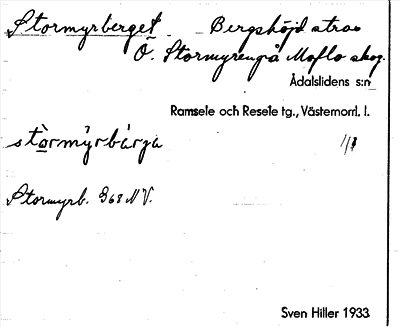 Stormyrberget Bergshöjd strax
O. Stormyren på Moflo skog.
Ådalslidens s:n
Ramsele och Resele tg., Västernorrl. l.
stòrmỳrbárga
Stormyrb. G68 NV.
Sven Hiller 1933